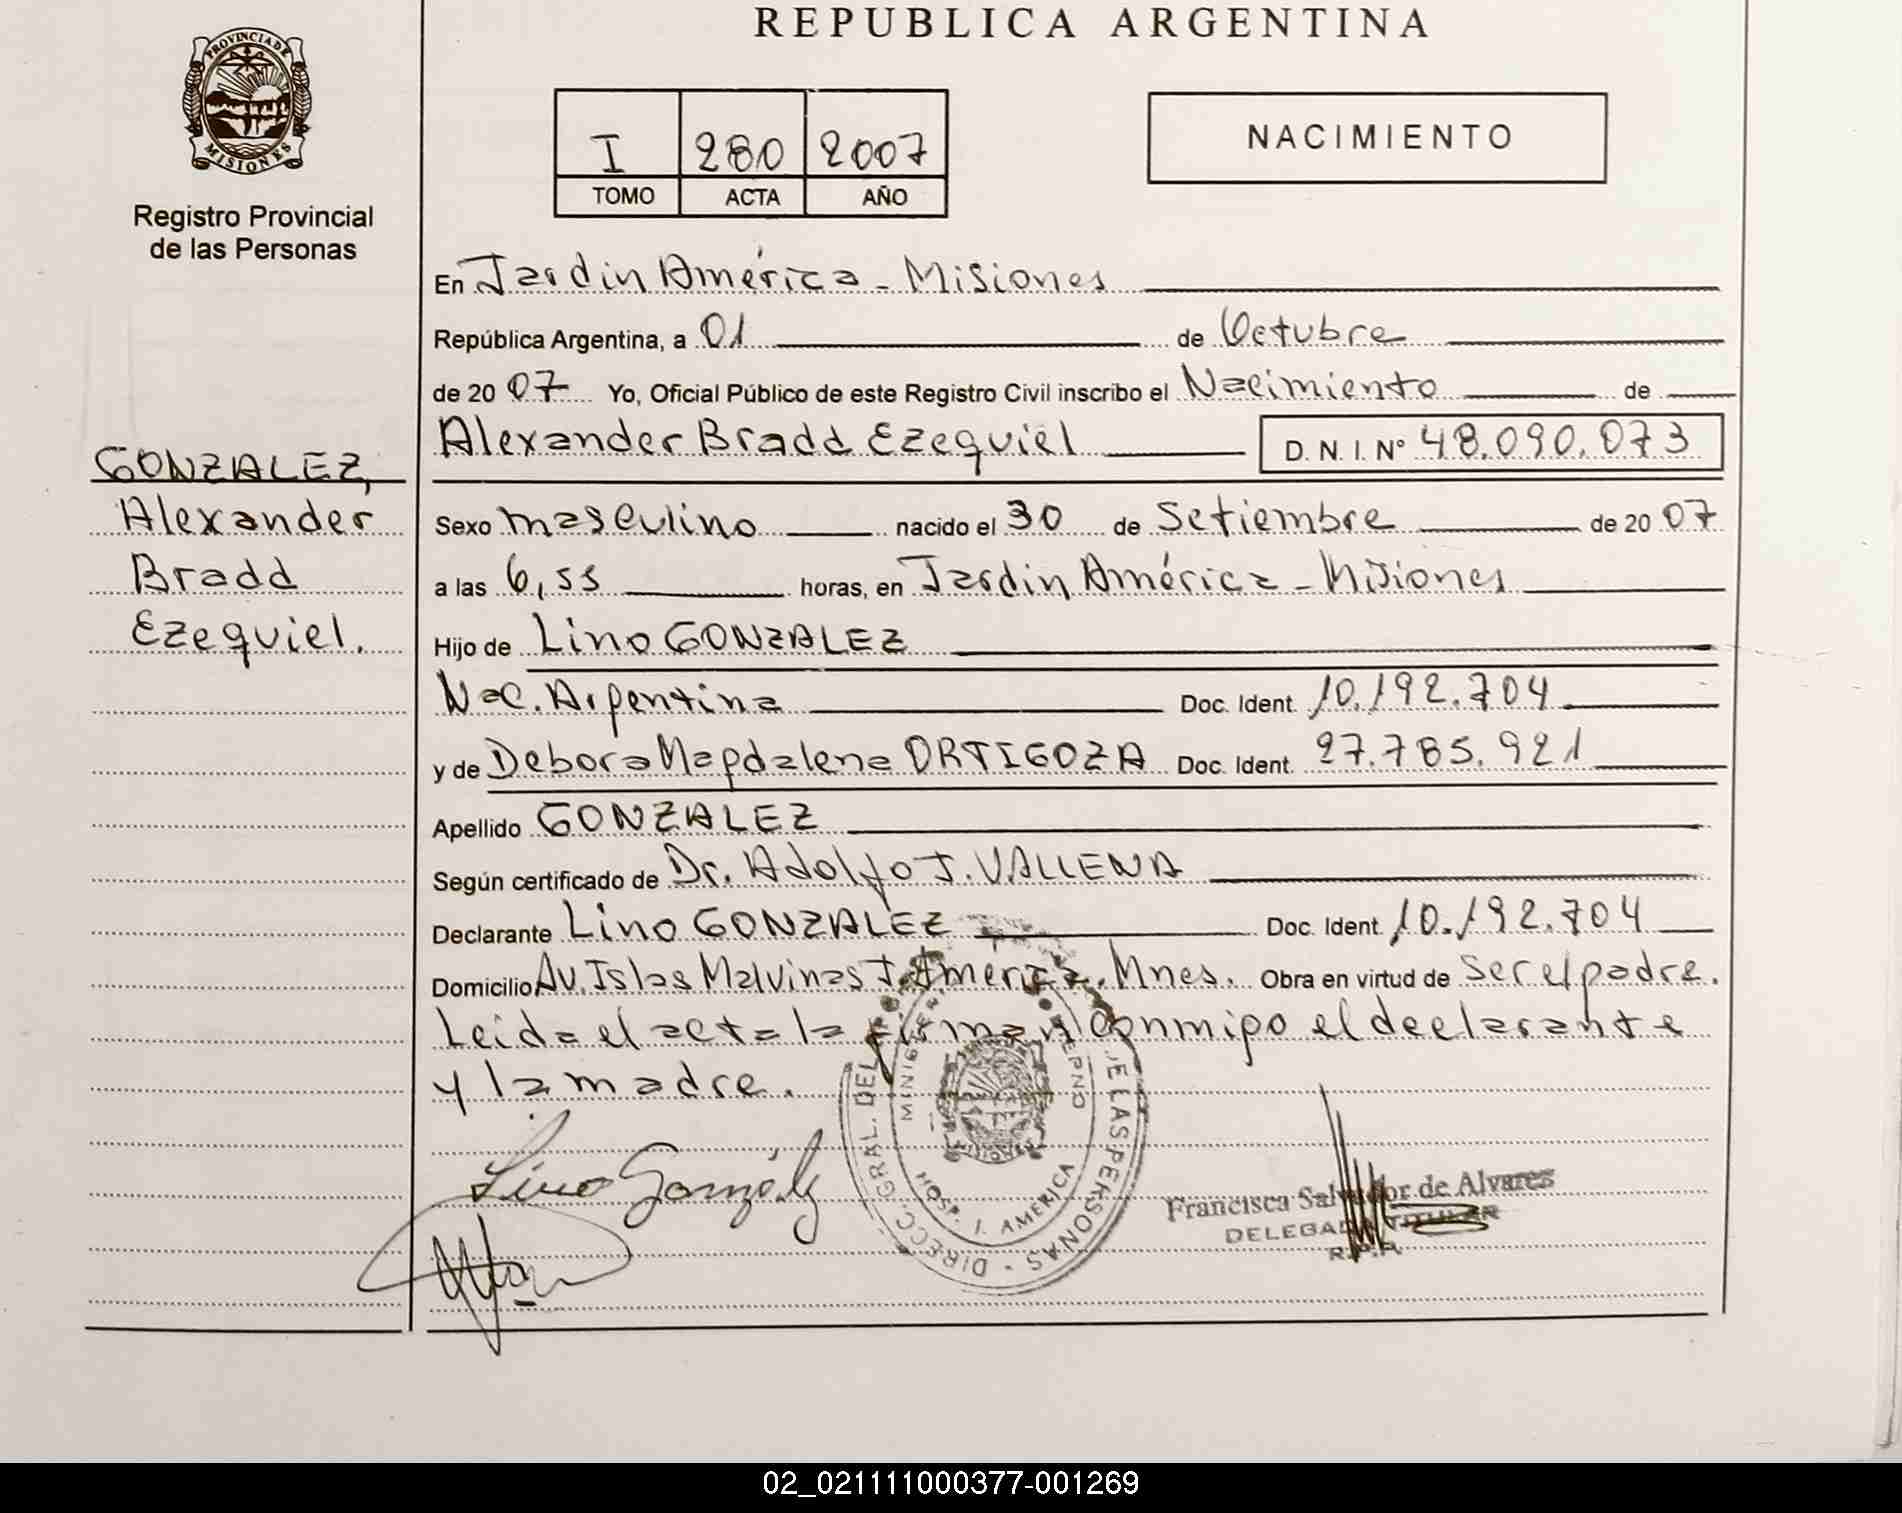 REPUBLICA ARGENTINA
PROVINCIA DE
MISIONES
Registro Provincial
de las Personas
I 280 2007
TOMO ACTA AÑO
NACIMIENTO
En Jardin América - Misiones
República Argentina, a 01 de Octubre
de 20 07 Yo, Oficial Público de este Registro Civil inscribo el Nacimiento de
Alexander Bradd Ezequiel D. N. I. Nº 48.090.073
GONZALEZ,
Alexander
Bradd
Ezequiel.
Sexo masculino nacido el 30 de Setiembre de 20 07
a las 6,55 horas, en Jardin América - Misiones
Hijo de Lino GONZALEZ
Nac. Argentina Doc. Ident. 10.192.704
y de Debora Magdalena ORTIGOZA Doc. Ident. 27.785.921
Apellido GONZALEZ
Según certificado de Dr. Adolfo J. VALLENA
Declarante Lino GONZALEZ Doc. Ident. 10.192.704
Domicilio Av. Islas Malvinas J. América. Mnes. Obra en virtud de ser el padre.
Leida el acta la firman conmigo el declarante
y la madre.
Lino González
DIRECC. GRAL. DEL DE LAS PERSONAS
HOSP. J. AMERICA
Francisca Salvador de Alvares
DELEGADA TITULAR
R.P.P.
02_021111000377-001269